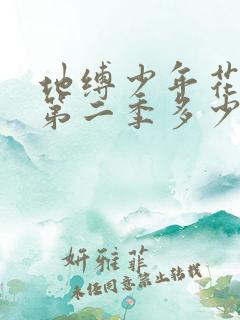 地缚少年花
第二季多少
妍雅菲
未经同意禁止转载